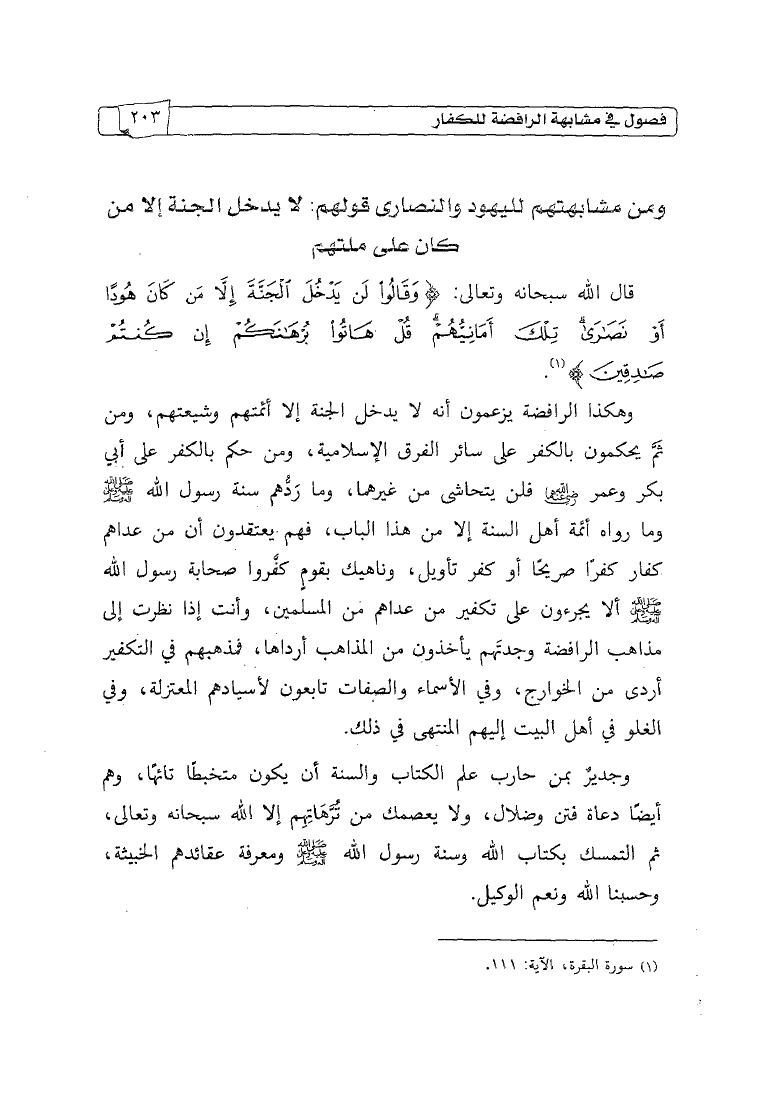 فصول في مشابهة الرافضة للكفار
٢٠٣
ومن مشابهتهم لليهود والنصارى قولهم: لا يدخل الجنة إلا من
كان على ملتهم
قال الله سبحانه وتعالى: ﴿ وَقَالُوا۟ لَن يَدْخُلَ ٱلْجَنَّةَ إِلَّا مَن كَانَ هُودًا
أَوْ نَصَـٰرَىٰ ۗ تِلْكَ أَمَانِيُّهُمْ ۗ قُلْ هَاتُوا۟ بُرْهَـٰنَكُمْ إِن كُنتُمْ
صَـٰدِقِينَ ﴾(١).
وهكذا الرافضة يزعمون أنه لا يدخل الجنة إلا أئمتهم وشيعتهم، ومن
ثَمَّ يحكمون بالكفر على سائر الفرق الإسلامية، ومن حكم بالكفر على أبي
بكر وعمر رضي الله عنهما فلن يتحاشى من غيرهما، وما رَدُّهم سنة رسول الله ﷺ
وما رواه أئمة أهل السنة إلا من هذا الباب، فهم يعتقدون أن من عداهم
كفار كفرًا صريحًا أو كفر تأويل، وناهيك بقومٍ كفَّروا صحابة رسول الله
ﷺ ألا يجرءون على تكفير من عداهم من المسلمين، وأنت إذا نظرت إلى
مذاهب الرافضة وجدتَهم يأخذون من المذاهب أرداها، فمذهبهم في التكفير
أردى من الخوارج، وفي الأسماء والصفات تابعون لأسيادهم المعتزلة، وفي
الغلو في أهل البيت إليهم المنتهى في ذلك.
وجديرٌ بمن حارب علم الكتاب والسنة أن يكون متخبطًا تائهًا، وهم
أيضًا دعاة فتن وضلال، ولا يعصمك من تُرَّهَاتِهِم إلا الله سبحانه وتعالى،
ثم التمسك بكتاب الله وسنة رسول الله ﷺ ومعرفة عقائدهم الخبيثة،
وحسبنا الله ونعم الوكيل.
(١) سورة البقرة، الآية: ١١١.